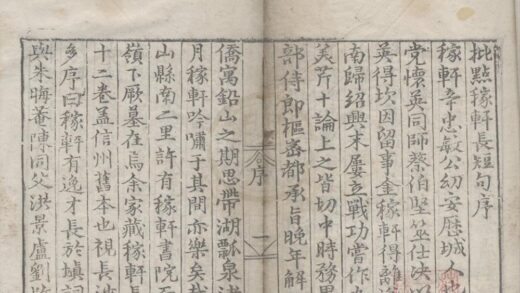 批點稼軒長短句序
稼軒辛忠敏公幼安歷城人
党懷英同師蔡伯堅筮仕決
英得坎因留事金稼軒得離
南歸紹興末屢立戰功嘗作九
美芹十論上之皆切中時務
部侍郎樞密都承旨晚年解
序
一
僑寓鉛山之期思帶湖瓢泉
月稼軒吟嘯于其間亦樂矣
山縣南二里許有稼軒書院
嶺下厥墓在烏余家藏稼軒長
十二卷盖信州舊本也視長
多序曰稼軒有逸才長於填詞
與朱晦菴陳同父洪景盧劉